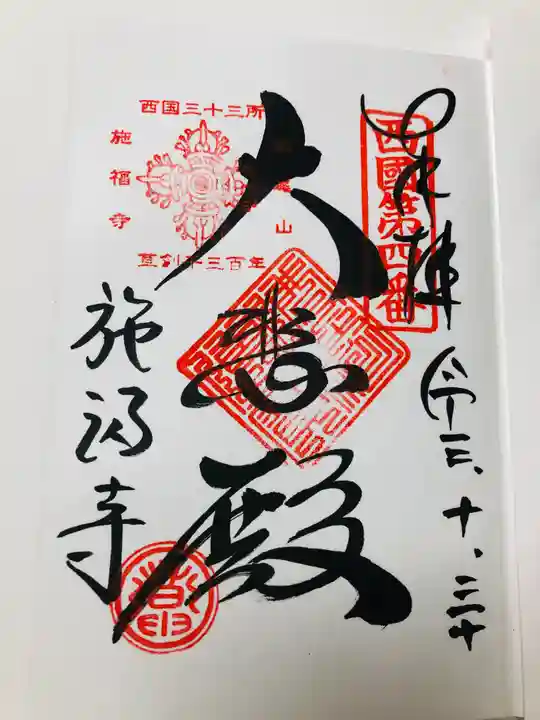 奉拝 令三、十、三十
西國第四番
大悲殿
西国三十三所
山
施福寺
草創千三百年
施福寺